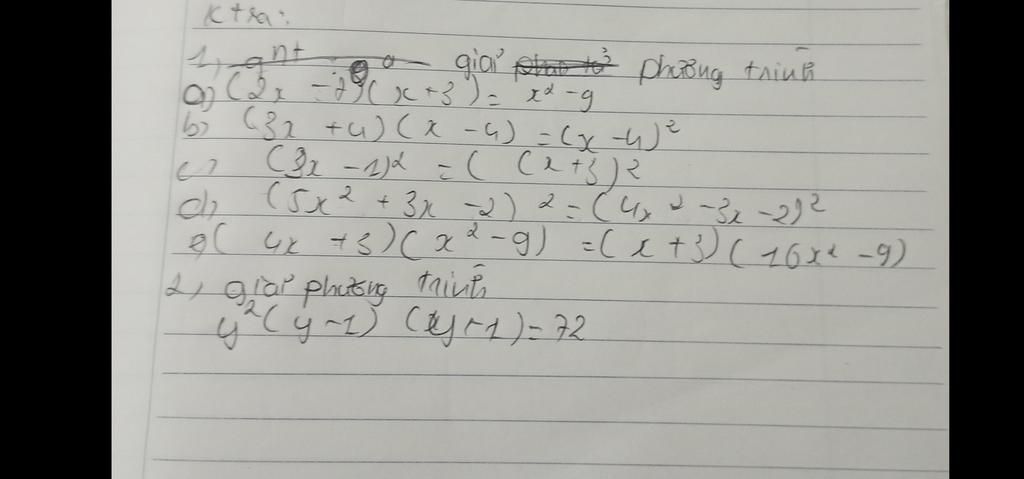 K + ra:
1, giải phương trình
a) (2x - 2)(x+3) = x² - 9
b) (3x + 4)(x - 4) = (x - 4)²
c) (3x - 1)² = ( (x+3)²
d) (5x² + 3x - 2)² = (4x² - 3x - 2)²
e( 4x + 3)(x² - 9) = (x + 3)(16x² - 9)
2, giải phương trình
y²(y - 1) (y + 1) = 72